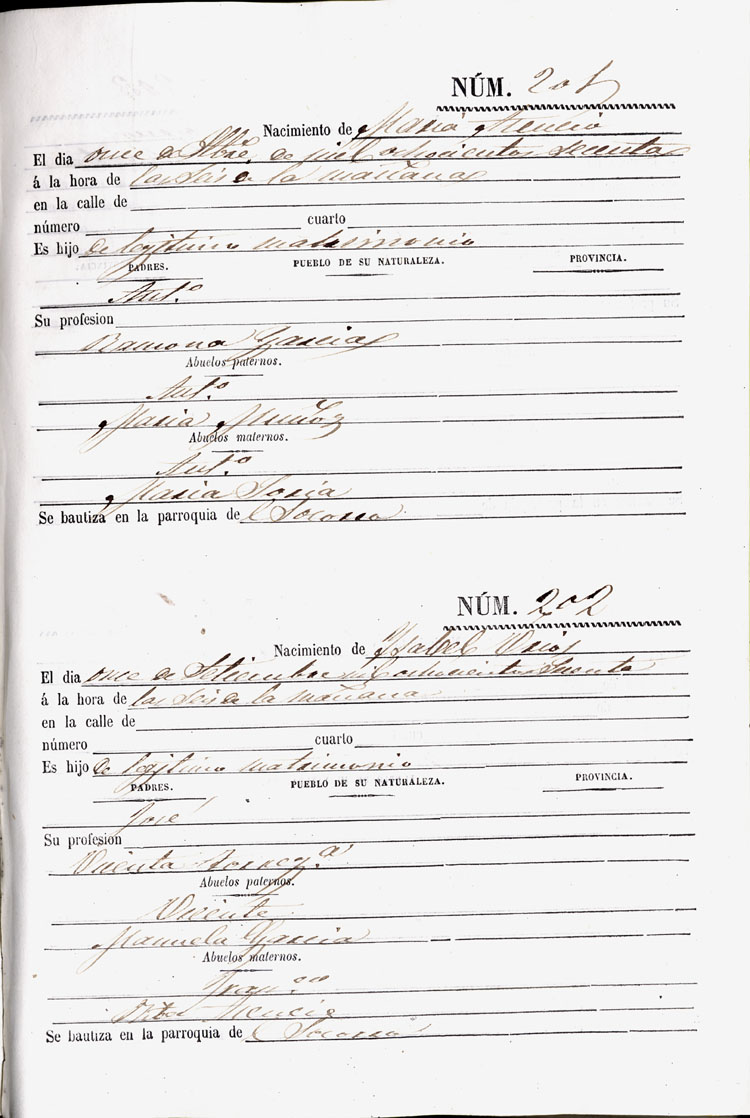 NÚM. 201
Nacimiento de Maria Atencio
El dia once de Stbre, de mil ochocientos secenta
á la hora de las seis de la mañana
en la calle de
número cuarto
Es hijo de lejitimo matrimonio
PADRES. PUEBLO DE SU NATURALEZA. PROVINCIA.
Ant.o
Su profesion
Ramona Garcia
Abuelos paternos.
Ant.o
Maria Muñoz
Abuelos maternos.
Ant.o
Maria Soria
Se bautiza en la parroquia del Socorro
NÚM. 202
Nacimiento de Ysabel
El dia once de Setiembre mil ochocientos secenta
á la hora de las seis de la mañana
en la calle de
número cuarto
Es hijo de lejitimo matrimonio
PADRES. PUEBLO DE SU NATURALEZA. PROVINCIA.
José
Su profesion
Vicenta
Abuelos paternos.
Vicente
Manuela Garcia
Abuelos maternos.
Fran.co
Rita Atencio
Se bautiza en la parroquia del Socorro